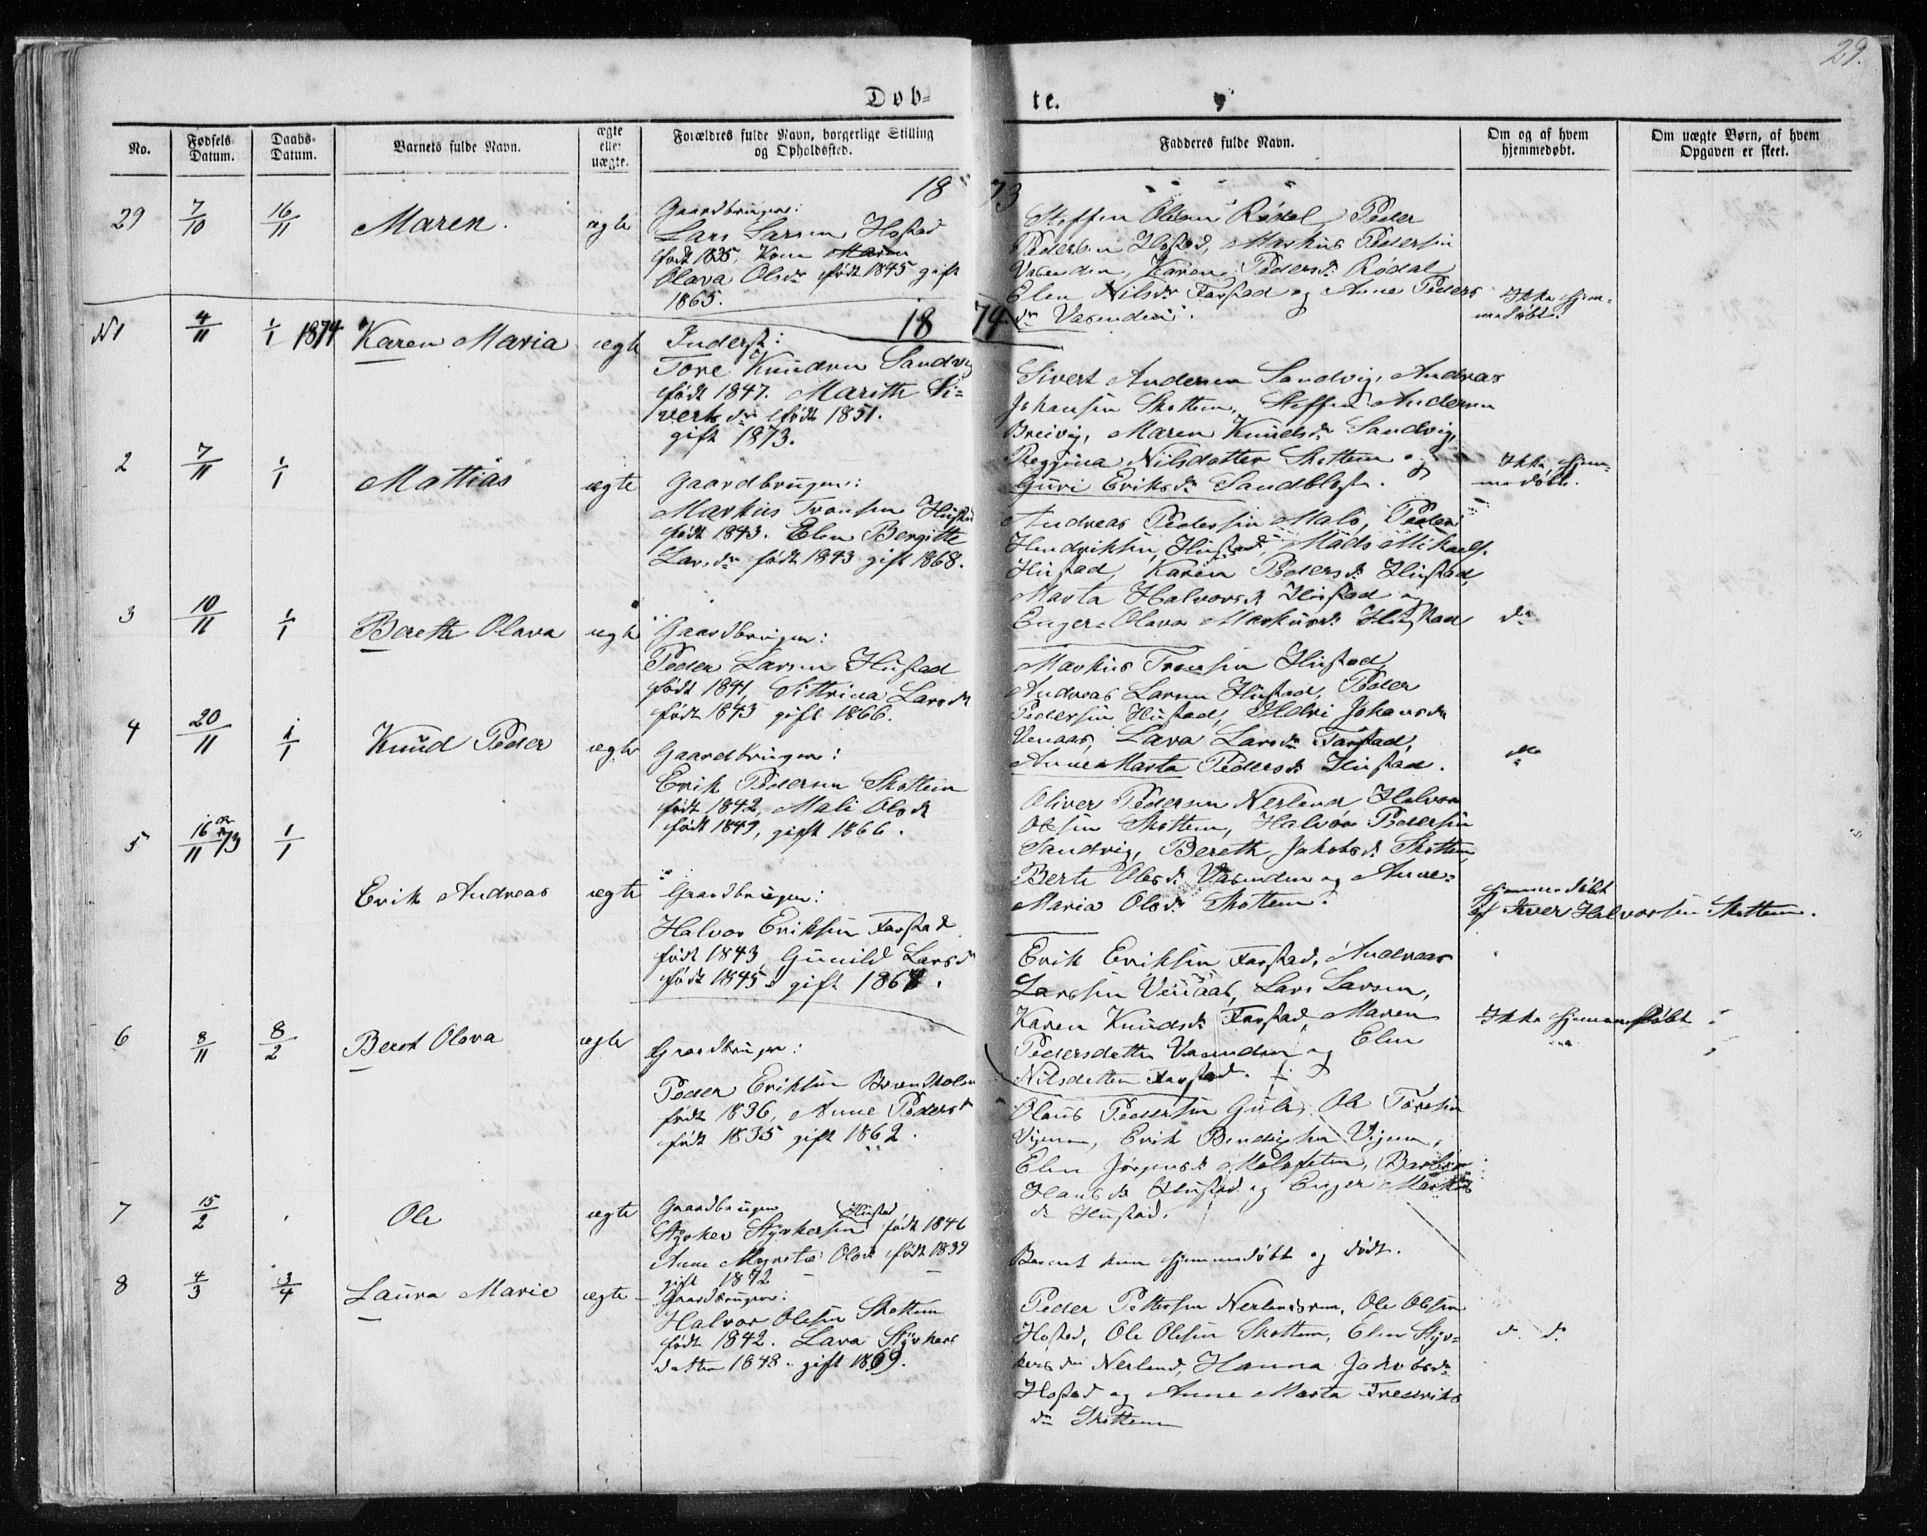 29.
Døb= te.
No. Fødsels Datum. Daabs-Datum. Barnets fulde Navn. ægte eller uægte. Forældres fulde Navn, borgerlige Stilling og Opholdssted. Fadderes fulde Navn. Om og af hvem hjemmedøbt. Om uægte Børn, af hvem Opgaven er skeet.
18 73
29 7/10 16/11 Maren. ægte
Gaardbruger:
Lars Larsen Hostad
født 1835, Kone
Olava Olsdr født 1845 gift
1865.
Steffen Olsen Rødal, Peder
Pedersen Hostad, Markus Pedersen
Vasenden, Karen Pedersdr Rødal
Elen Nilsdr Farstad og Anne Peders
dr Vasenden.
Ikke hjem-
medøbt.
18 74
N1 4/11 1/1 1874 Karen Maria ægte
Inderst:
Tore Knudsen Sandvig
født 1847. Marith Si-
vertsdr født 1851.
gift 1873.
Sivert Andersen Sandvig, Andreas
Johansen Skottem, Steffen Andersen
Breivig, Maren Knudsdr Sandvig,
Reggina Nilsdatter Skottem og
Guri Eriksdr Sandblost.
Ikke hjem-
medøbt.
2 7/11 1/1 Mattias ægte
Gaardbruger:
Markus Tronsen Hustad
født 1843. Elen Bergitte
Larsdr født 1843 gift 1868.
Andreas Pedersen Malo, Peder
Hendriksen Hustad, Mads Mikaels.
Hustad, Karen Pedersdr Hustad
Marta Halvorsdr Hustad og
Enger Olava Markusdr Hustad
do
3 10/11 1/1 Bereth Olava ægte
Gaardbruger:
Peder Larsen Hustad
født 1841, Sittrina Larsdr
født 1843 gift 1866.
Markus Tronsen Hustad
Andreas Larsen Hustad, Peder
Pedersen Hustad, Ildri Johansdr
Venaas, Lava Larsdr Farstad,
Anne Marta Pedersdr Hustad.
do
4 20/11 1/1 Knud Peder ægte
Gaardbruger:
Erik Pedersen Skottem
født 1842, Mali Olsdr
født 1849, gift 1866.
Oliver Pedersen Nerland, Halvor
Olsen Skottem, Halvor Pedersen
Sandvig, Bereth Jakobsdr Skottem
Berte Olesdr Vasenden og Anne-
Maria Olsdr Skottem.
hjemmedøbt
af Iver Halvorsen Skottem.
5 16/11 73 1/1
Erik Andreas ægte
Gaardbruger:
Halvor Eriksen Farstad
født 1843, Gunild Larsdr
født 1845 gift 1867.
Erik Eriksen Farstad, Andreas
Larssen Venaas, Lars Larsen,
Karen Knudsdr Farstad, Maren
Pedersdatter Vasenden og Elen
Nilsdatter Farstad.
Ikke hjemmedøbt
6 8/11 8/2 Beret Olava ægte
Gaardbruger:
Peder Eriksen
født 1836, Anne Pedersdr
født 1835 gift 1862.
Olaus Pedersen Gule, Ole Toresen
Vigum, Erik Bendigtsen Vigum,
Elen Jørgensdr
Hansdr Hustad og Enger Markus
dr Hustad.
7 15/2 Ole ægte
Gaardbruger
Styrker Styrkersen Hustad født 1846
Anne Magreta Olsdr født 1839
gift 1872
Barnet kun hjemmedøbt og dødt.
8 4/3 3/4 Laura Marie ægte
Gaardbruger:
Halvor Olesen Skottem
født 1842. Lava Styrkers
datter 1848. gift 1869.
Peder Pettersen Nerlandsrem, Ole Olsen
Hostad, Ole Olesen Skottem, Elen Styr-
kersdr Nerland, Hanna Jakobsdr
Hostad og Anne Marta Fredriks
dr Skottem
do do